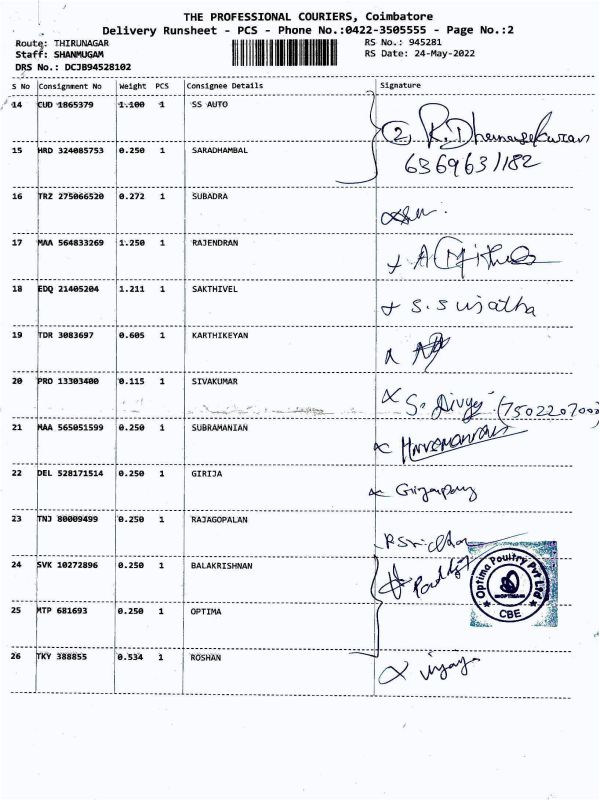 THE PROFESSIONAL COURIERS, Coimbatore
Delivery Runsheet - PCS - Phone No.:0422-3505555 - Page No.:2
Route: THIRUNAGAR
RS No.: 945281
Staff: SHANMUGAM
RS Date: 24-May-2022
DRS No.: DCJB94528102
S No Consignment No Weight PCS Consignee Details Signature
14 CUD 1865379 1.100 1 SS AUTO
② R. Dhanasekaran
15 HRD 324085753 0.250 1 SARADHAMBAL
6369631182
16 TRZ 275066520 0.272 1 SUBADRA
17 MAA 564833269 1.250 1 RAJENDRAN
18 EDQ 21405204 1.211 1 SAKTHIVEL
S. Sujatha
19 TDR 3083697 0.605 1 KARTHIKEYAN
20 PRO 13303400 0.115 1 SIVAKUMAR
S. Divya (7502207002
21 MAA 565051599 0.250 1 SUBRAMANIAN
22 DEL 528171514 0.250 1 GIRIJA
23 TNJ 80009499 0.250 1 RAJAGOPALAN
24 SVK 10272896 0.250 1 BALAKRISHNAN
Optima Poultry Pvt Ltd
OPTIMA
CBE
25 MTP 681693 0.250 1 OPTIMA
26 TKY 388855 0.534 1 ROSHAN